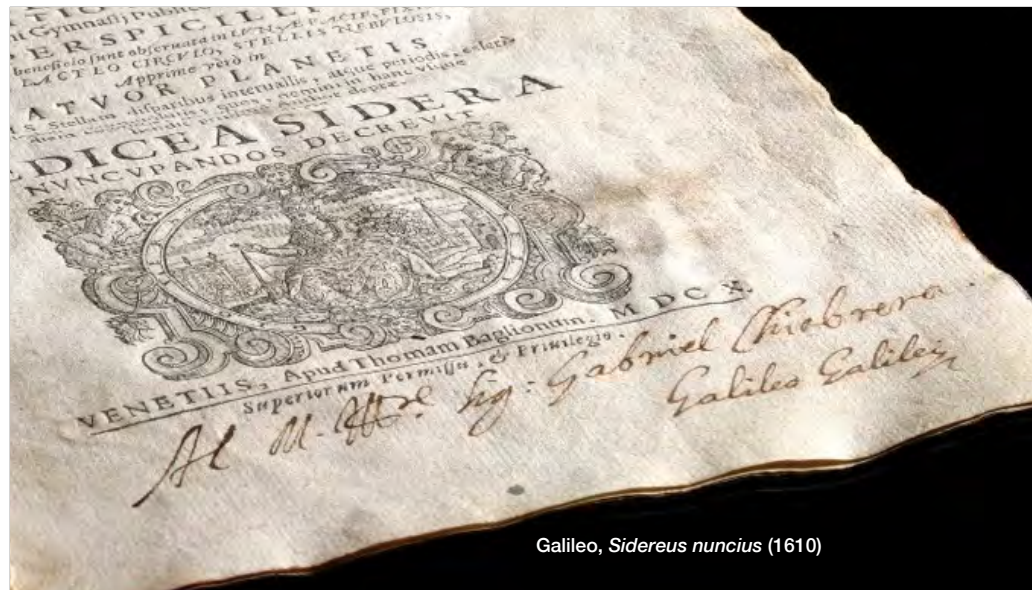 nt Gymnasij Publico
PERSPICILLI
beneficio sunt obseruata in LVNÆ FACIE, FIXIS
LACTEO CIRCVLO, STELLIS NEBVLOSIS,
Apprime verò in
ATVOR PLANETIS
Stellam disparibus interuallis, atque periodis, celeri
nemini in hanc vsque
DICEA SIDERA
NVNCVPANDOS DECREVIT
VENETIIS, Apud Thomam Baglionum. MDCX
Superiorum Permissu, & Priuilegio.
Al M. Ill.re Sig: Gabriel Chiabrera.
Galileo Galilei
Galileo, Sidereus nuncius (1610)